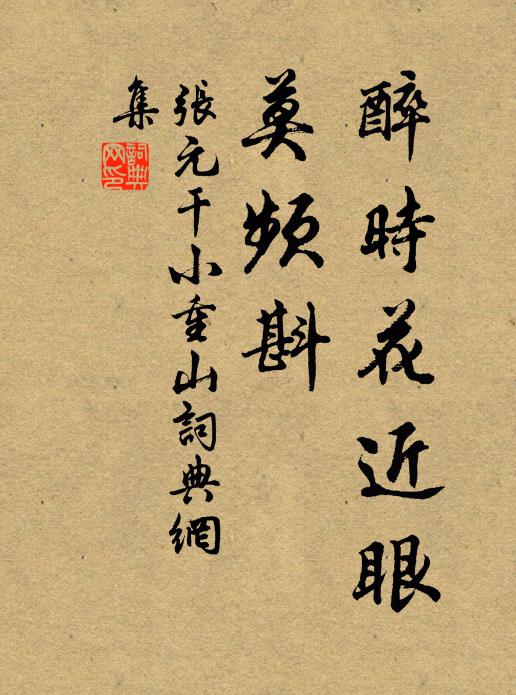 醉時花近眼
莫頻斟
張元干小重山詞典網
集
詞典網印